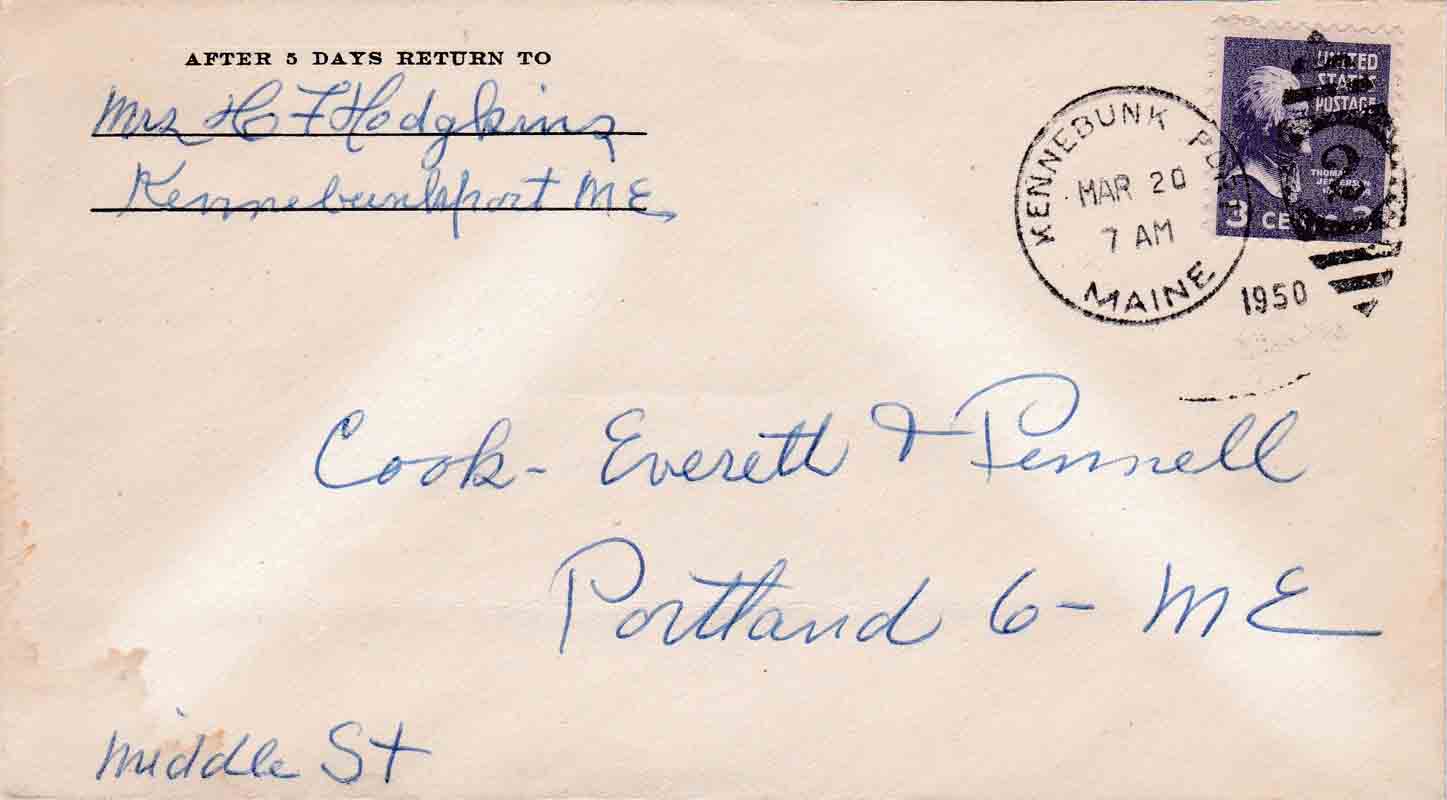 AFTER 5 DAYS RETURN TO
Mrs H F Hodgkins
Kennebunkport ME
KENNEBUNK PORT
MAR 20
7 AM
MAINE
1950
UNITED
STATES
POSTAGE
THOMAS
JEFFERSON
3 CENTS 3
2
Cook - Everett & Pennell
Portland 6 - ME
Middle St